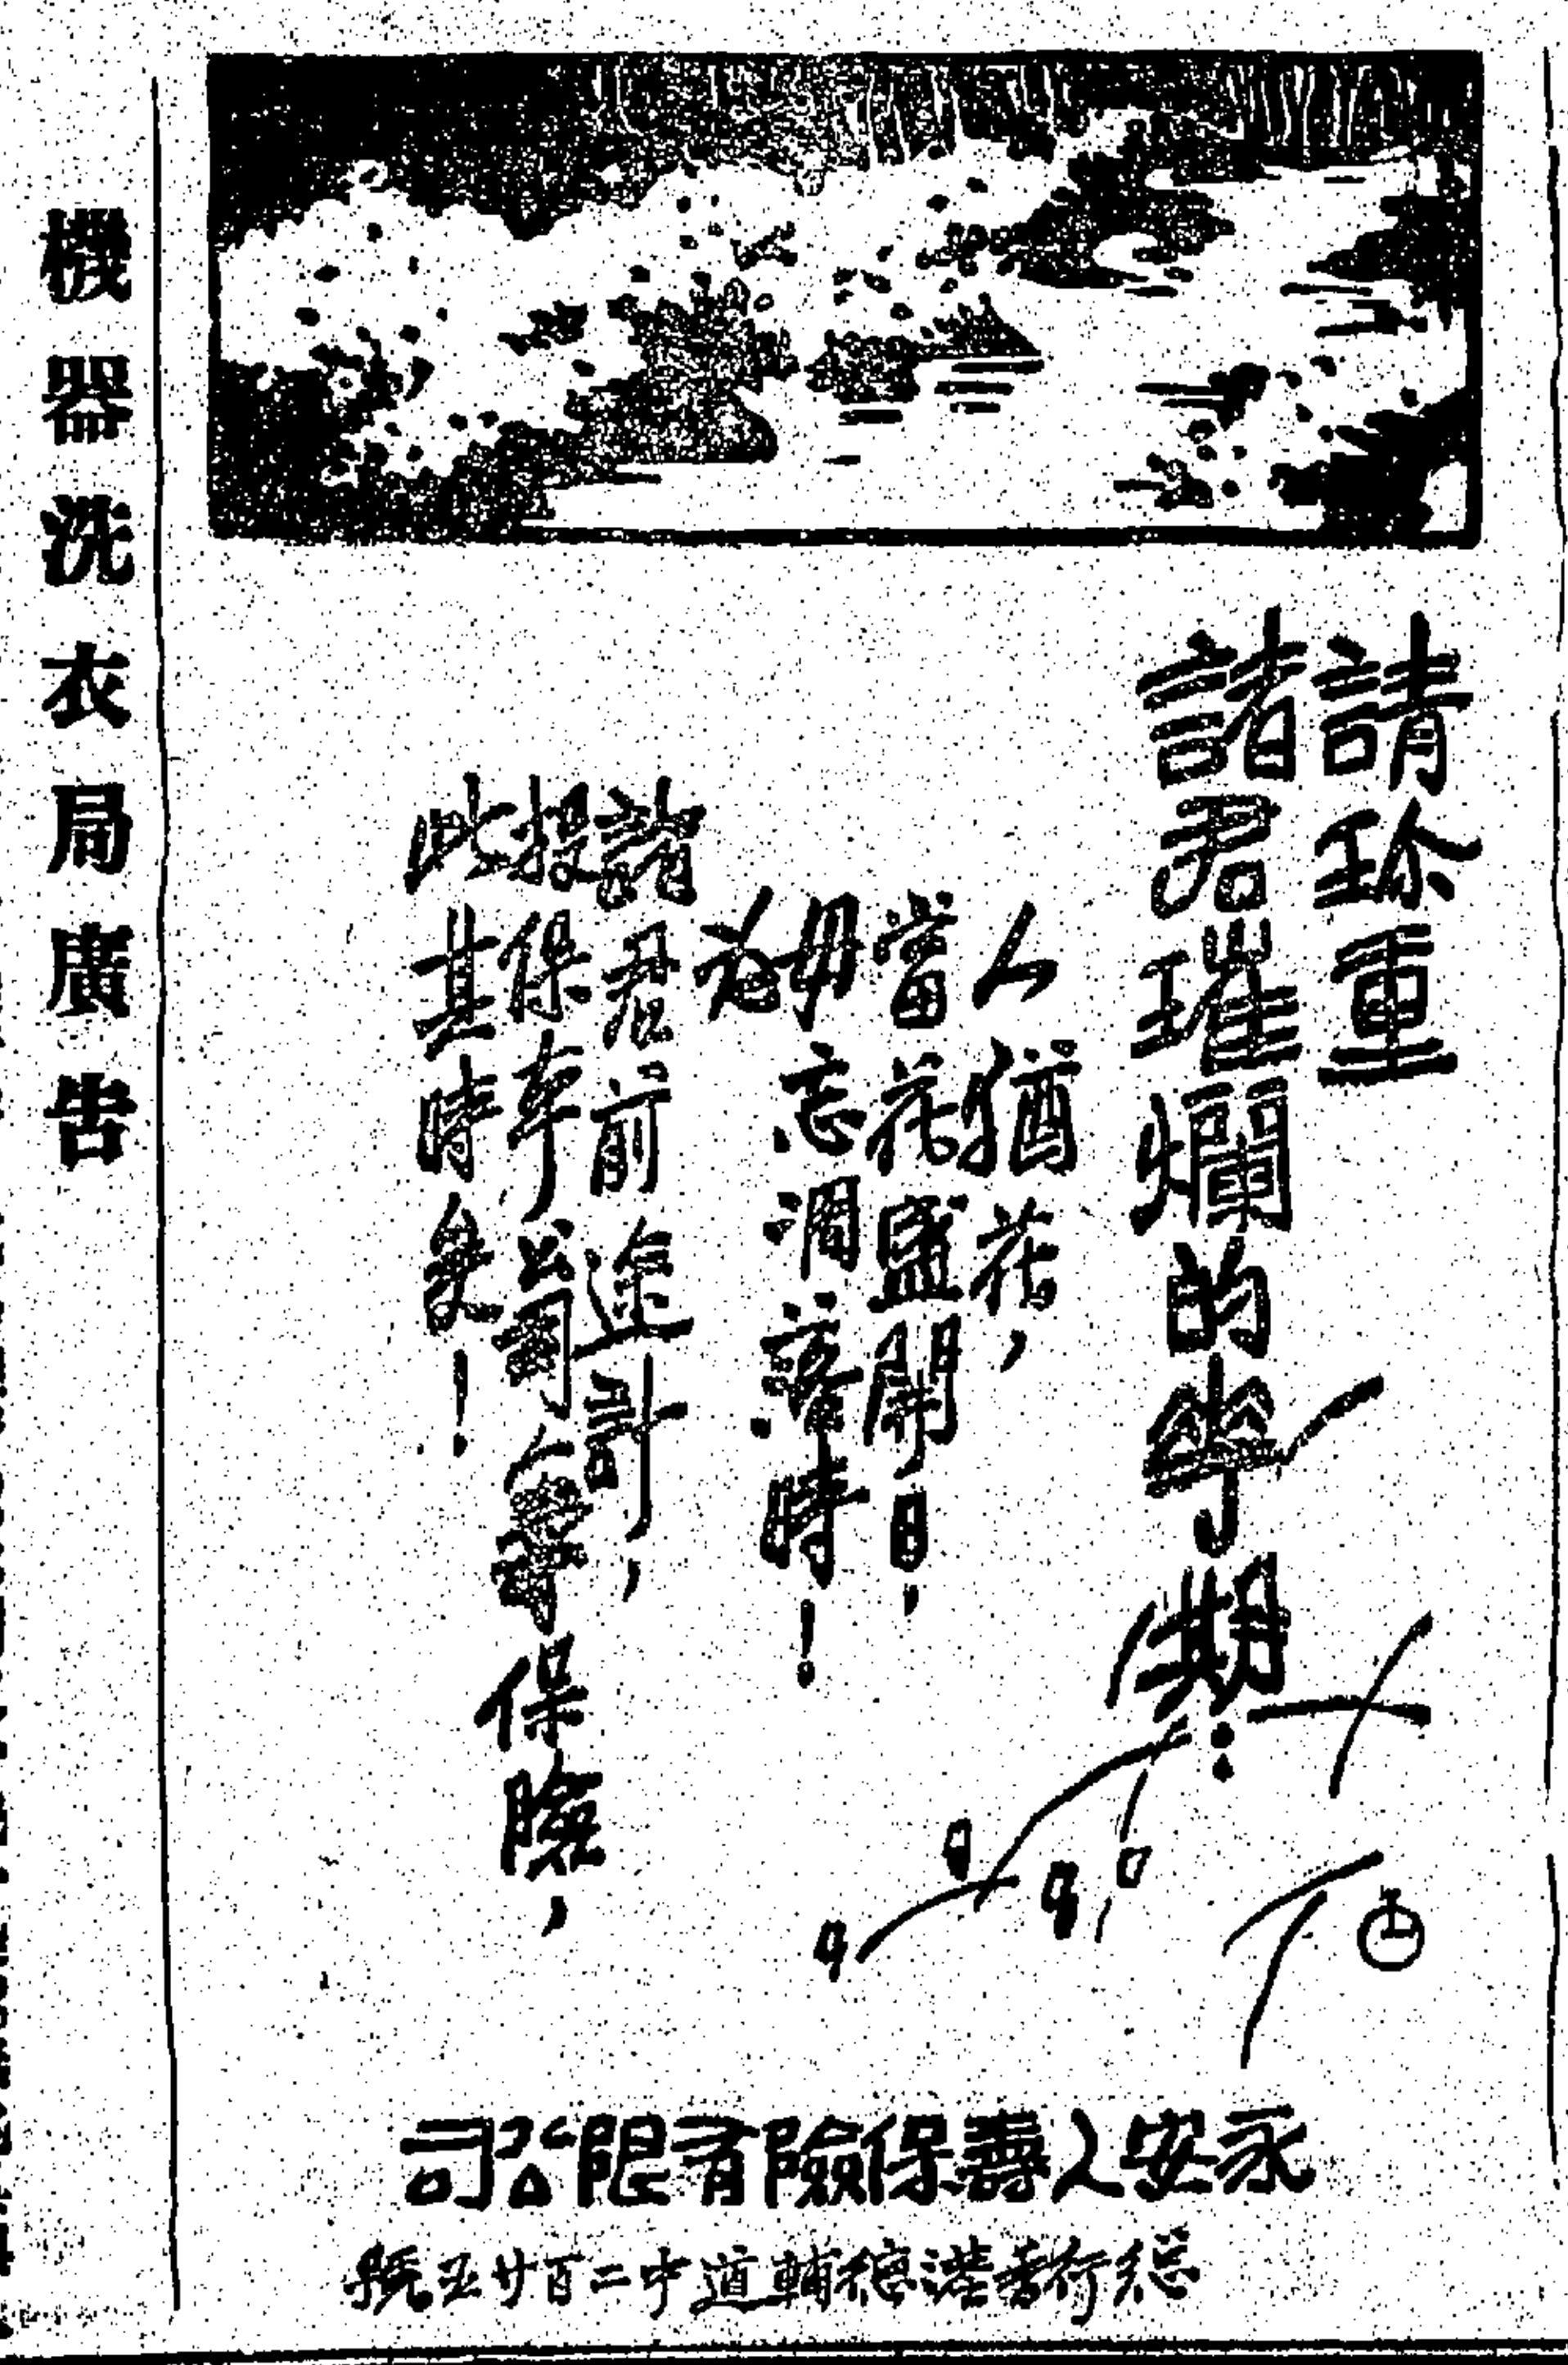 請珍重
諸君璀爛的華期：
人猶花，
當花盛開日，
毋忘凋落時！
為
諸君前途計，
投保本公司人壽保險，
此其時矣！
永安人壽保險有限公司
總行香港德輔道中二百廿五號
機器洗衣局廣告